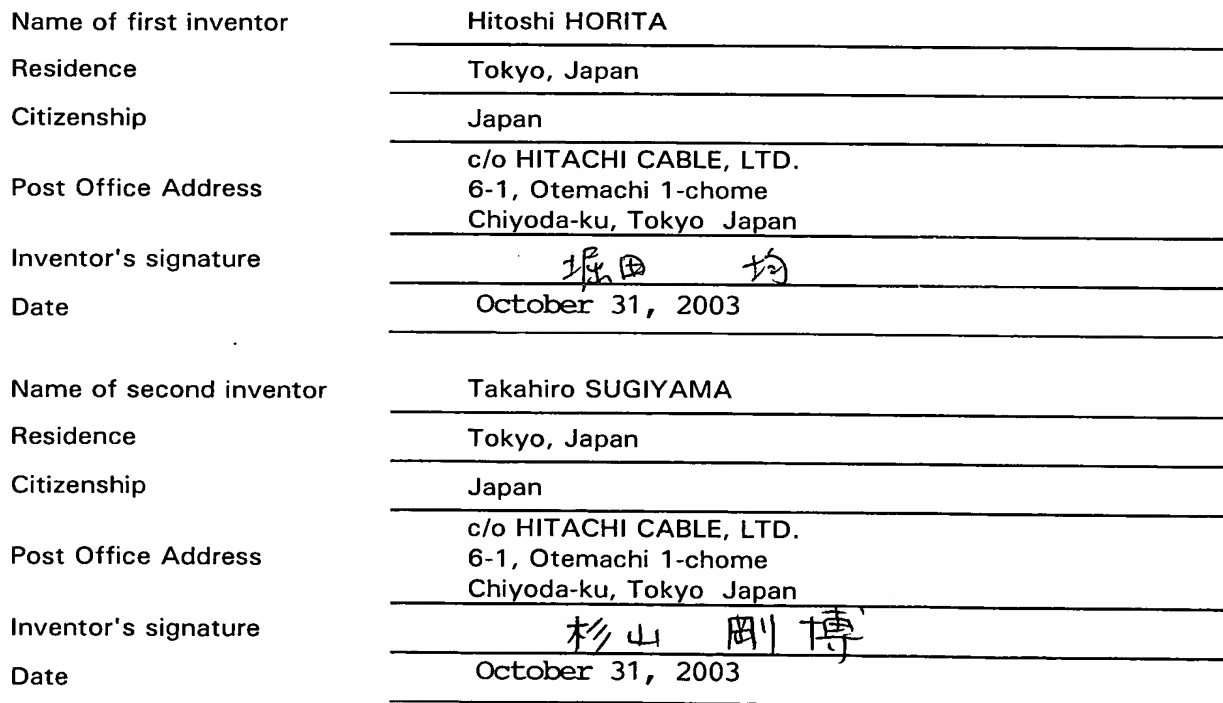 Name of first inventor Hitoshi HORITA
Residence Tokyo, Japan
Citizenship Japan
c/o HITACHI CABLE, LTD.
Post Office Address 6-1, Otemachi 1-chome
Chiyoda-ku, Tokyo Japan
Inventor's signature 堀田 均
Date October 31, 2003
Name of second inventor Takahiro SUGIYAMA
Residence Tokyo, Japan
Citizenship Japan
c/o HITACHI CABLE, LTD.
Post Office Address 6-1, Otemachi 1-chome
Chiyoda-ku, Tokyo Japan
Inventor's signature 杉山 剛博
Date October 31, 2003